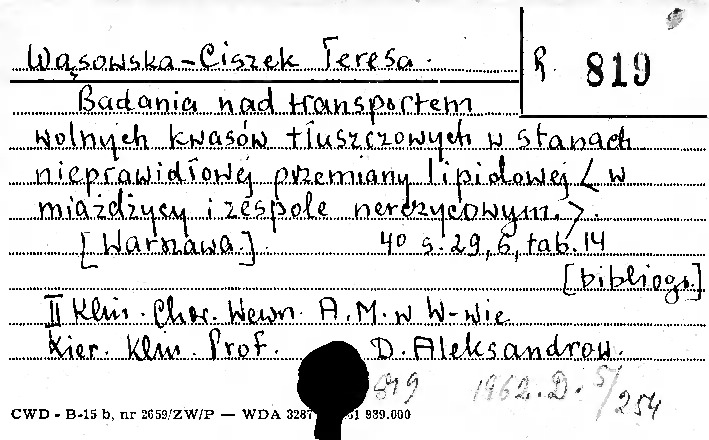 Wąsowska-Ciszek Teresa.
R. 819
Badania nad transportem
wolnych kwasów tłuszczowych w stanach
nieprawidłowej przemiany lipidowej < w
miażdżycy i zespole nerczycowym. >.
[Warszawa.] 4º s. 29, 6, tab. 14
[bibliogr.]
II Klin. Chor. Wewn. A.M. w W-wie
Kier. Klin. Prof. D. Aleksandrow.
819 1962. D. 5/254
CWD - B-15 b, nr 2659/ZW/P — WDA 3287 51 939.000